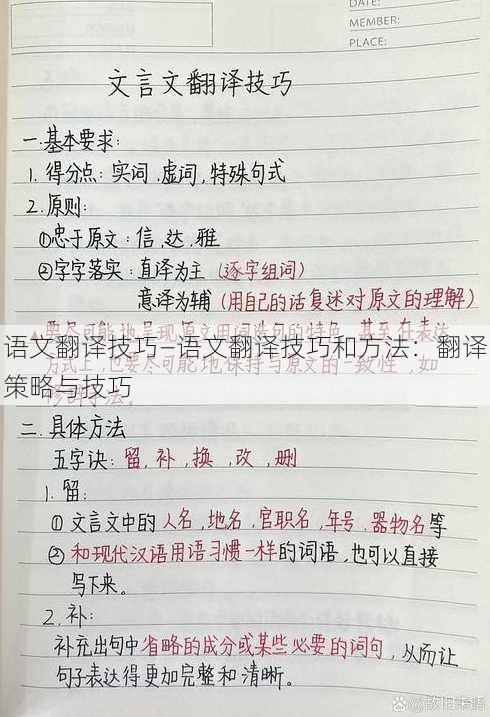 DATE:
MEMBER:
PLACE:
文言文翻译技巧
一.基本要求:
1. 得分点: 实词.虚词,特殊句式
2.原则:
①忠于原文:信,达,雅
②字字落实:直译为主(逐字组词)
意译为辅(用自己的话复述对原文的理解)
要尽可能地呈现原文用词造句的特色,甚至在表达
语文翻译技巧—语文翻译技巧和方法:翻译
方式上,也要尽可能地保持与原文的一致性,如
策略与技巧
二.具体方法
五字诀:留,补,换,改,删
1.留:
①文言文中的人名,地名,官职名,年号.器物名等
②和现代汉语用语习惯一样的词语,也可以直接
写下来。
2.补:
补充出句中省略的成分或某些必要的词句,从而让
句子表达得更加完整和清晰。